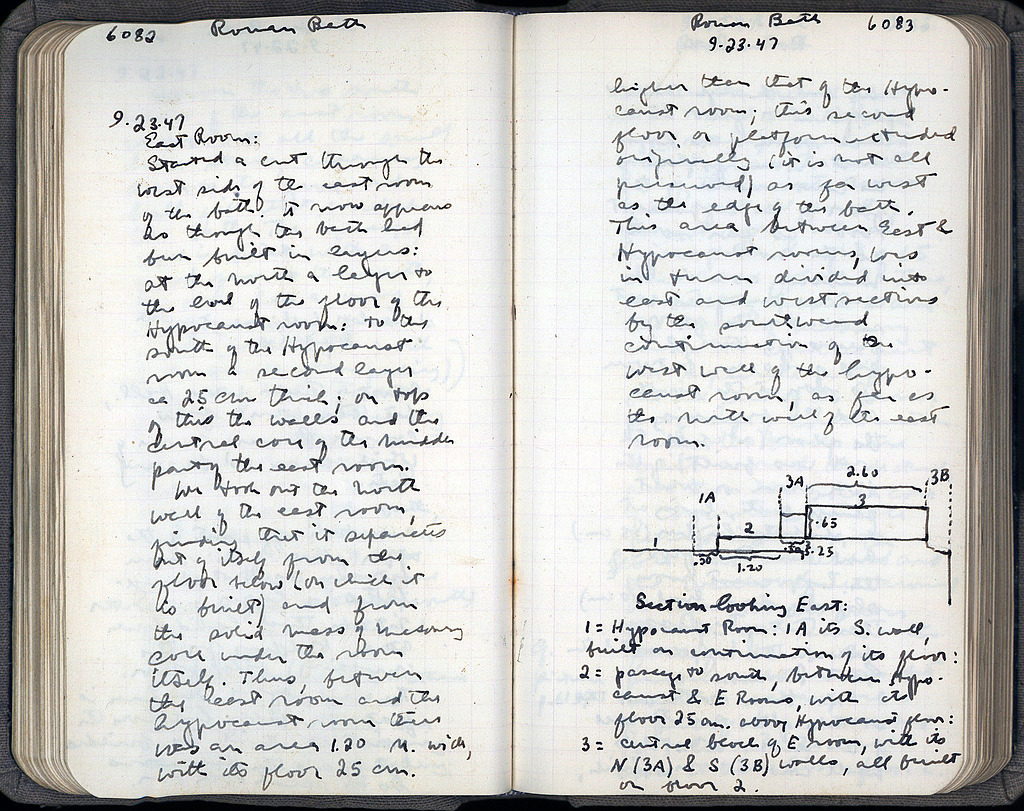 6082 Roman Bath
9.23.47
East Room:
Started a cut through the
west side of the east room
of the bath. It now appears
as though the bath had
been built in layers:
at the north a layer to
the level of the floor of the
Hypocaust room: to the
south of the Hypocaust
room a second layer
ca 25 cm thick; on top
of this the walls and the
central core of the middle
part of the east room.
We took out the north
wall of the east room,
finding that it separates
out of itself from the
floor below (on which it
is built) and from
the solid mass of masonry
core under the room
itself. Thus, between
the east room and the
hypocaust room there
was an area 1.20 m. wide,
with its floor 25 cm.
Roman Bath 6083
9.23.47
higher than that of the Hypo-
caust room; this second
floor or platform extended
originally (it is not all
preserved) as far west
as the edge of the bath.
This area between East &
Hypocaust rooms, was
in turn divided into
east and west sections
by the southward
continuation of the
west wall of the hypo-
caust room, as far as
the north wall of the east
room.
2.60
1A 3A 3 3B
1 2 .65
.50 1.20 .50 .25
Section looking East:
1 = Hypocaust Room: 1A its S. wall,
built on continuation of its floor:
2 = passage to south, between Hypo-
caust & E Rooms, with its
floor 25 cm. above Hypocaust floor:
3 = central block of E room, with its
N (3A) & S (3B) walls, all built
on floor 2.